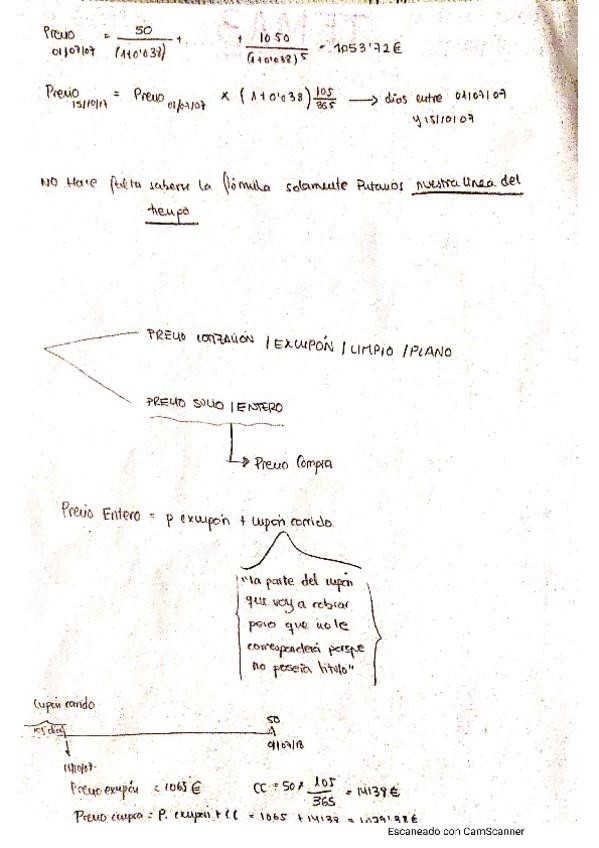 Precio 01/07/07 = 50/(1+0'038) + + 1050/(1+0'038)^5 = 1053'72€
Precio 15/10/07 = Precio 01/07/07 x (1+0'038) 105/365 → días entre 01/07/07
y 15/10/07
NO Hace falta saberse la fórmula solamente Pintamos nuestra línea del
tiempo
PRECIO COTIZACIÓN / EXCUPÓN / LIMPIO / PLANO
PRECIO SUCIO / ENTERO
→ Precio Compra
Precio Entero = p excupón + cupón corrido.
"la parte del cupón
que voy a cobrar
pero que no le
correspondería porque
no poseía título"
Cupón corrido
105 días
50
01/07/08
15/10/07
Precio excupón = 1065€
CC = 50 x 105/365 = 14'38€
Precio compra = P. excupón + CC = 1065 + 14'38 = 1079'38€
Escaneado con CamScanner